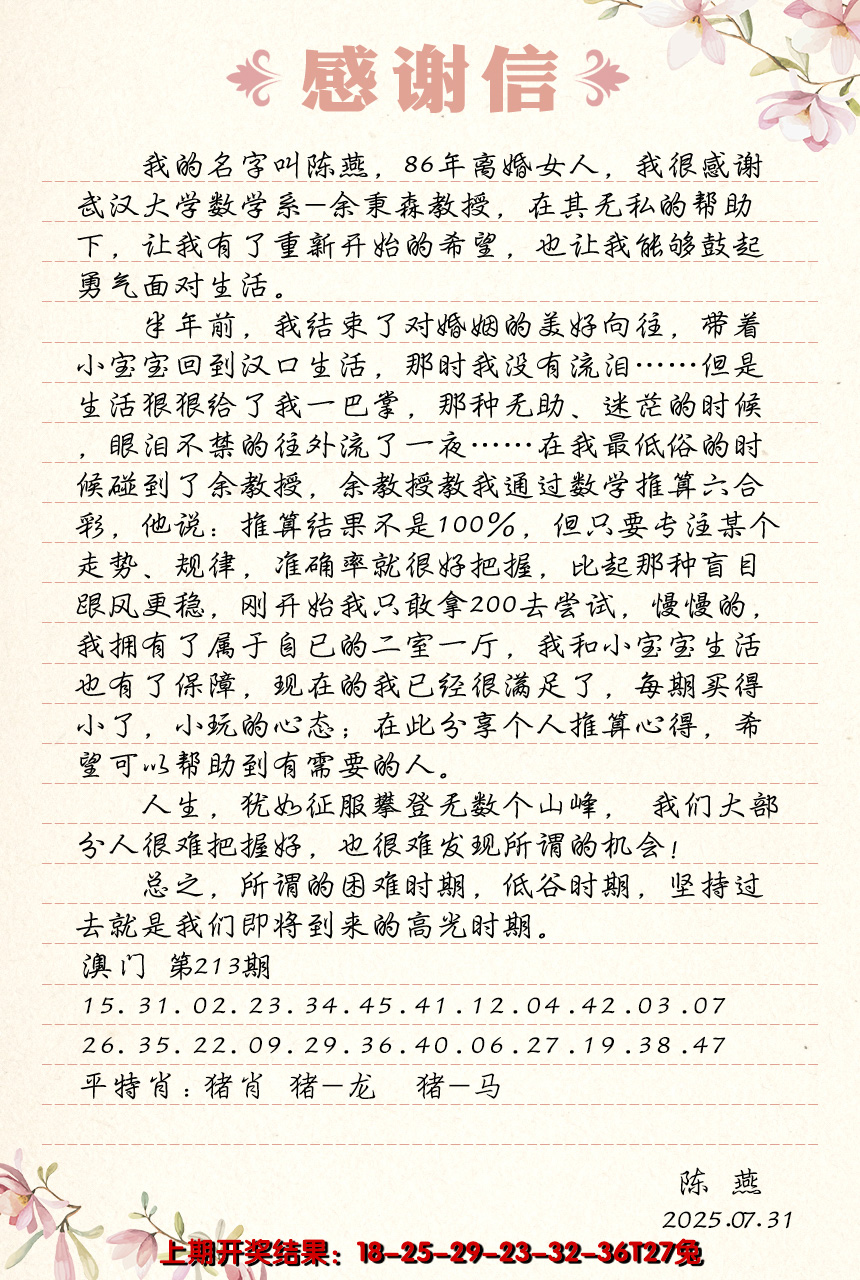 感谢信
我的名字叫陈燕，86年离婚女人，我很感谢
武汉大学数学系—余秉森教授，在其无私的帮助
下，让我有了重新开始的希望，也让我能够鼓起
勇气面对生活。
半年前，我结束了对婚姻的美好向往，带着
小宝宝回到汉口生活，那时我没有流泪……但是
生活狠狠给了我一巴掌，那种无助、迷茫的时候
，眼泪不禁的往外流了一夜……在我最低俗的时
候碰到了余教授，余教授教我通过数学推算六合
彩，他说：推算结果不是100%，但只要专注某个
走势、规律，准确率就很好把握，比起那种盲目
跟风更稳，刚开始我只敢拿200去尝试，慢慢的，
我拥有了属于自已的二室一厅，我和小宝宝生活
也有了保障，现在的我已经很满足了，每期买得
小了，小玩的心态；在此分享个人推算心得，希
望可以帮助到有需要的人。
人生，犹如征服攀登无数个山峰， 我们大部
分人很难把握好，也很难发现所谓的机会！
总之，所谓的困难时期，低谷时期，坚持过
去就是我们即将到来的高光时期。
澳门 第213期
15.31.02.23.34.45.41.12.04.42.03.07
26.35.22.09.29.36.40.06.27.19.38.47
平特肖：猪肖 猪—龙 猪—马
陈 燕
2025.07.31
上期开奖结果：18-25-29-23-32-36T27兔